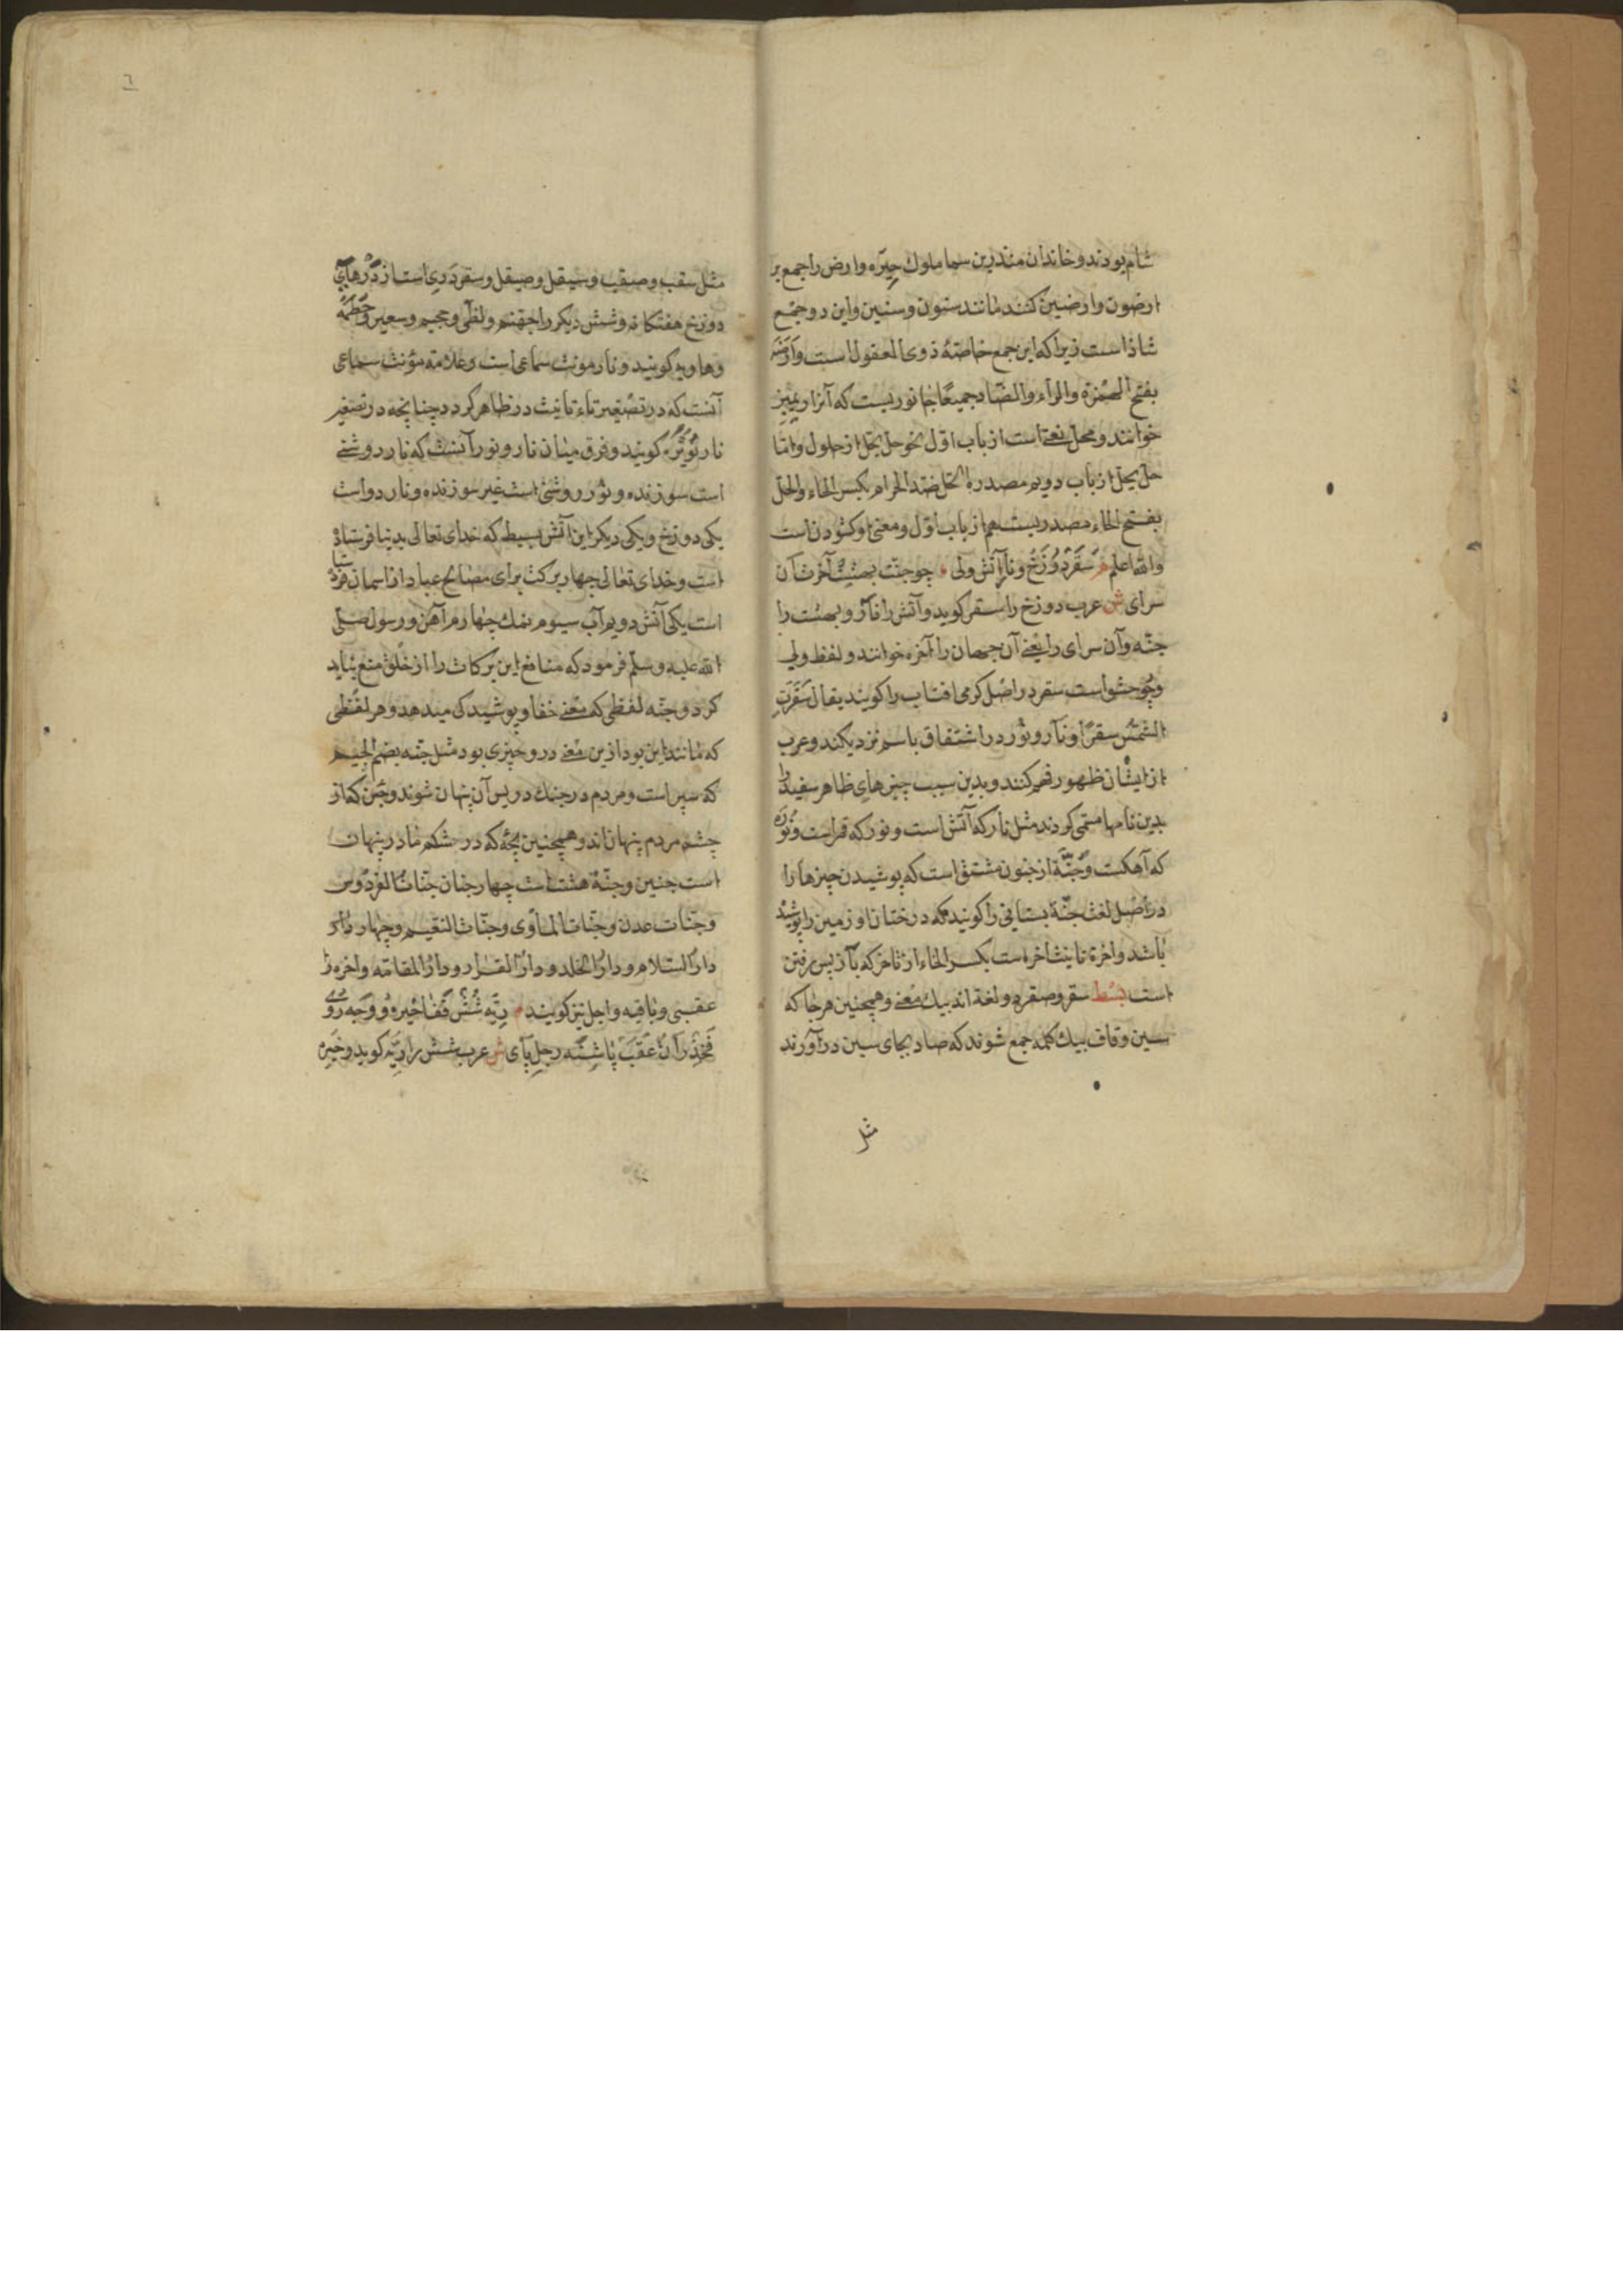 شام بودند و خاندان منذر بن سما ملوك حیره و ارض را جمع بر
ارضون و ارضین کنند مانند سنون و سنین و این دو جمع
شاذ است زیرا که این جمع خاصهٔ ذوی العقول است و ارضه
بفتح الهمزة والراء والضاد جمیعًا جانوریست که آنرا
خوانند و محل نعت است از باب اول نحو حل یحل از حلول و اما
حل یحل از باب دویم مصدره الحل ضد الحرام بکسر الحاء والحل
بفتح الحاء مصدریست هم از باب اول و معنی او کشودن است
والله اعلم م سقر دوزخ و نار آتش ولی چو جنت بهشت آخرت آن
سرای ش عرب دوزخ را سقر کوید و آتش را نار و بهشت را
جنه و آن سرای را یعنی آن جهان را آخره خوانند و لفظ ولی
و چو حشو است سقر در اصل کرمی افتاب را کویند یقال سقرت
الشمس سقرًا و نار و نور در اشتقاق باسم نزدیکند و عرب
از ایشان ظهور فهم کنند و بدین سبب چیزهای ظاهر سفید را
بدین نامها مسمی کردند مثل نار که آتش است و نور که قمر است و نوره
که آهکست و جنّة از جنون مشتق است که پوشیدن چیزها را
در اصل لغت جنّة بستانی را کویند که درختان او زمین را پوشیده
باشد و اخرة تانیث اخر است بکسر الخاء از تاخر که باز پس رفتن
است بسط سقر و صقر دو لغة اند بیك معنی و همچنین هر جا که
سین و قاف بیك کلمه جمع شوند که صاد بجای سین درآورند
مثل
٦
مثل سقب و صقب و سیقل و صیقل و سقر دری است از درهای
دوزخ هفتکانه و شش دیکر را جهنم و لظی و جحیم و سعیر و حطمه
و هاویه کویند و نار مونث سماعی است و علامة مؤنث سماعی
آنست که در تصغیر تاء تانیث در ظاهر کردد چنانچه در تصغیر
نار نویره کویند و فرق میان نار و نور آنست که نار روشنی
است سوزنده و نور روشنی است غیر سوزنده و نار دو است
یکی دوزخ و یکی دیکر این آتش بسیط که خدای تعالی بدنیا فرستاده
است و خدای تعالی چهار برکت برای مصالح عباد از اسمان فرستاده
است یکی آتش دویم آب سیوم نمك چهارم آهن و رسول صلی
الله علیه و سلم فرمود که منافع این برکات را از خلق منع نباید
کرد و جنّه لفظی که معنی خفا و پوشیدکی میدهد و هر لفظی
که مانند این بود ازین معنی درو چیزی بود مثل جنه بضم الجیم
که سپر است و مردم در جنك در پس آن پنهان شوند و جن که از
چشم مردم پنهان اند و همچنین بچه که در شکم مادر پنهان
است جنین و جنّة هشت است چهار جنان جنات الفردوس
و جنّات عدن و جنّات المأوی و جنّات النعیم و چهار دار
دار السلام و دار الخلد و دار القرار و دار المقامه و اخره را
عقبی و باقیه و اجل نیز کویند م ریّه شش قفا و وجه روی
فخذ ران عقب پاشنه رجل پای ش عرب شش را ریّه کوید و